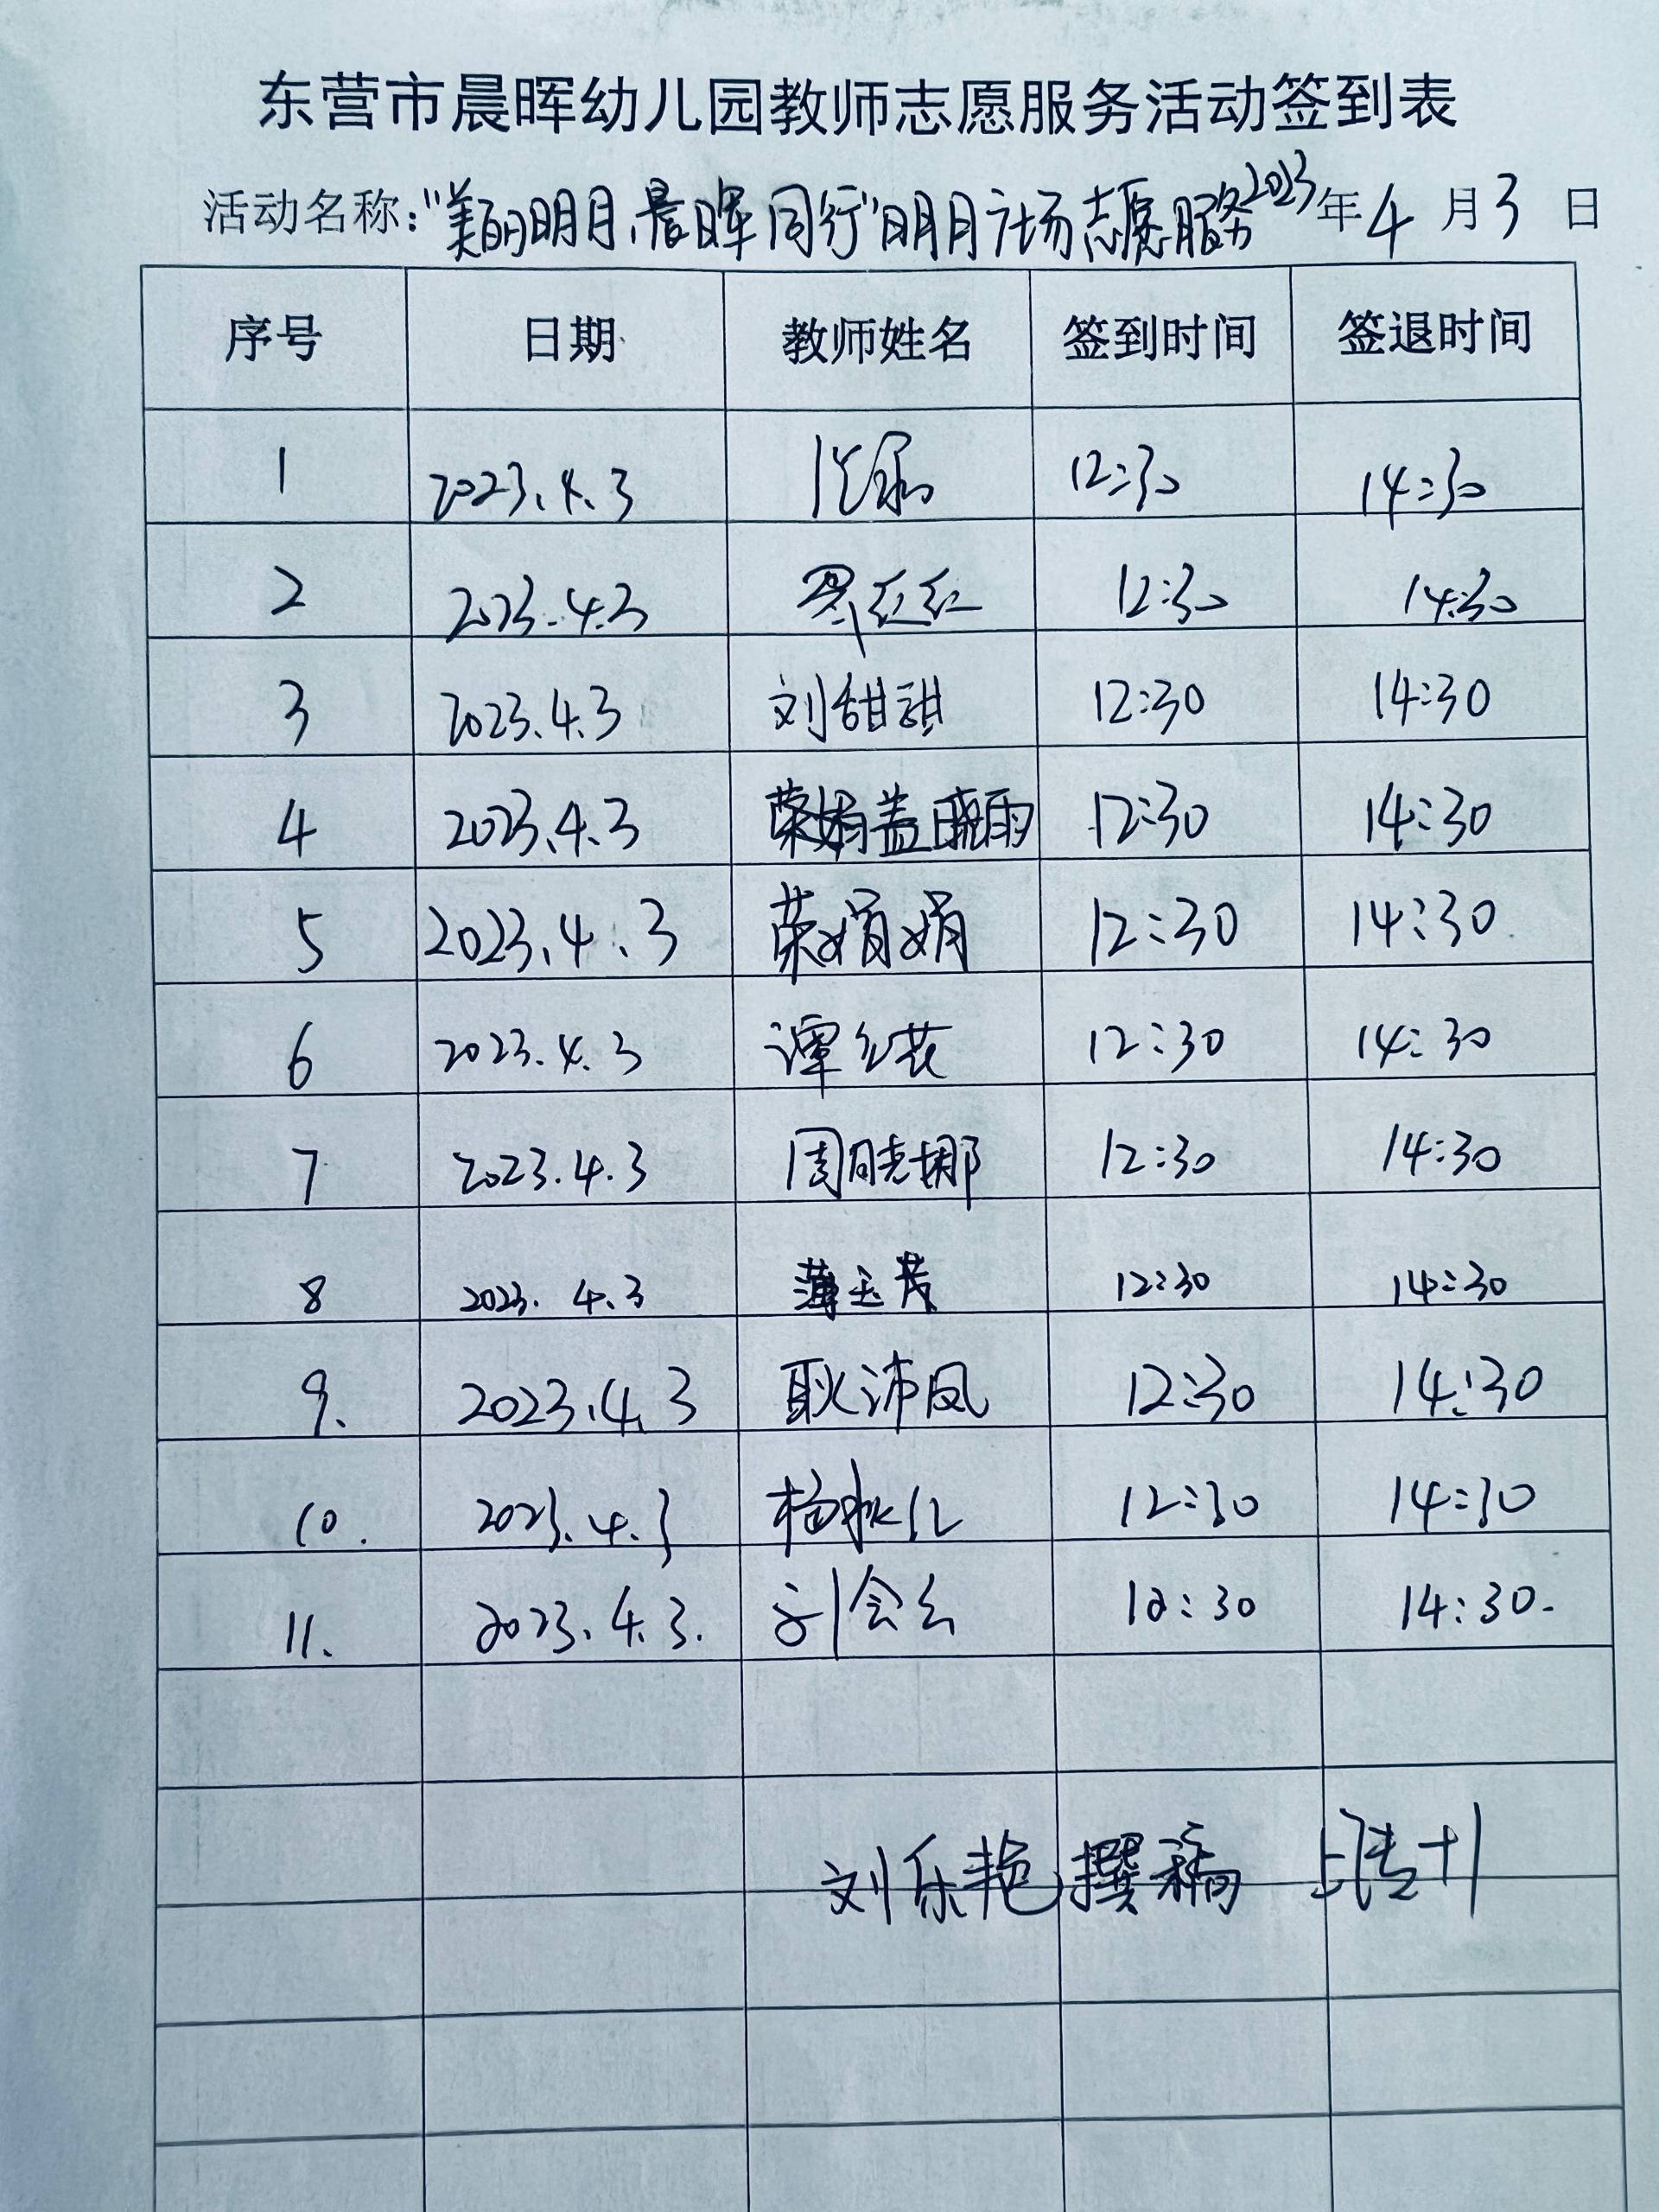 东营市晨晖幼儿园教师志愿服务活动签到表
活动名称:“美丽明月,晨晖同行”明月广场志愿服务 2023年4月3日
序号 日期 教师姓名 签到时间 签退时间
1 2023.4.3 12:30 14:30
2 2023.4.3 红红 12:30 14:30
3 2023.4.3 刘甜甜 12:30 14:30
4 2023.4.3 盖晓雨 12:30 14:30
5 2023.4.3 荣娟娟 12:30 14:30
6 2023.4.3 谭 12:30 14:30
7 2023.4.3 周晓娜 12:30 14:30
8 2023.4.3 薄玉芳 12:30 14:30
9. 2023.4.3 耿沛凤 12:30 14:30
10. 2023.4.3 杨秋红 12:30 14:30
11. 2023.4.3. 刘会云 12:30 14:30.
刘乐艳 撰稿